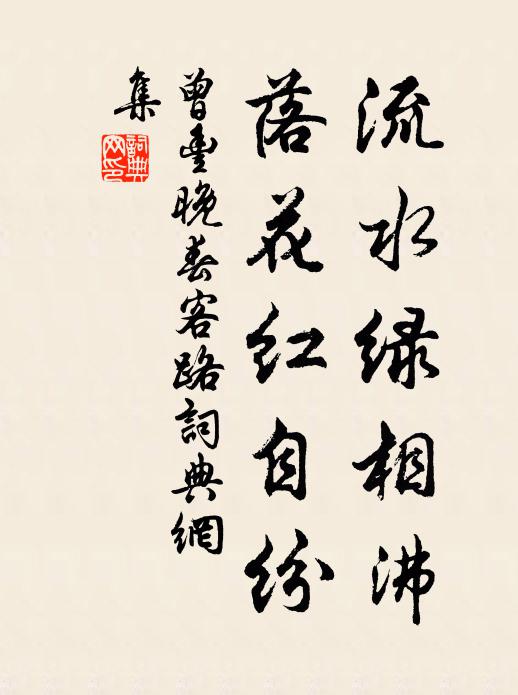 流水绿相沸
落花红自纷
曾豊晚春客路詞典網
集
詞典网印